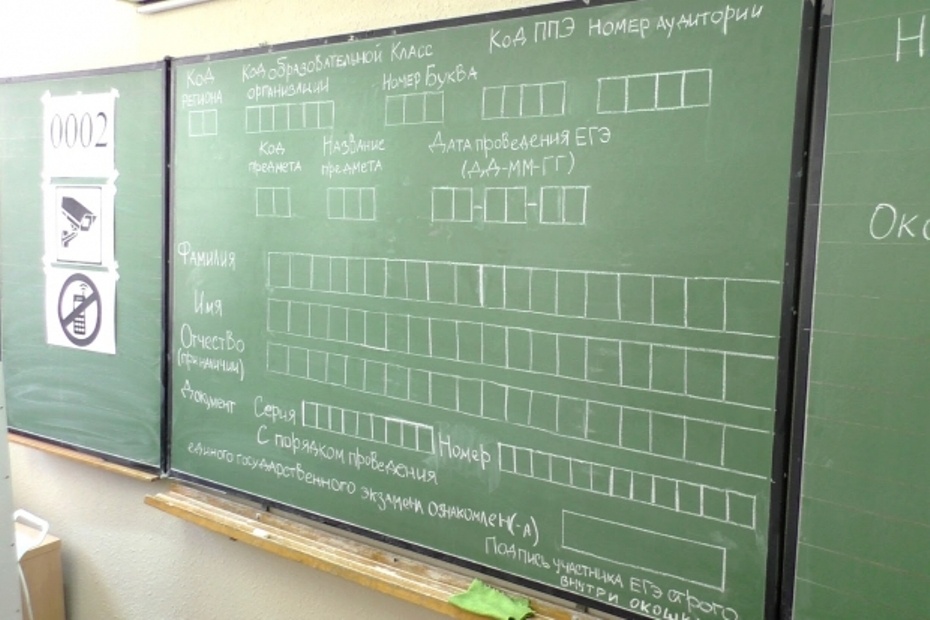 0002
Код региона
Код образовательной организации
Класс
Номер Буква
Код ППЭ
Номер аудитории
Код предмета
Название предмета
Дата проведения ЕГЭ
(ДД-ММ-ГГ)
Фамилия
Имя
Отчество
(при наличии)
Документ
Серия
Номер
С порядком проведения
единого государственного экзамена ознакомлен(-а)
Подпись участника ЕГЭ строго
внутри
Н